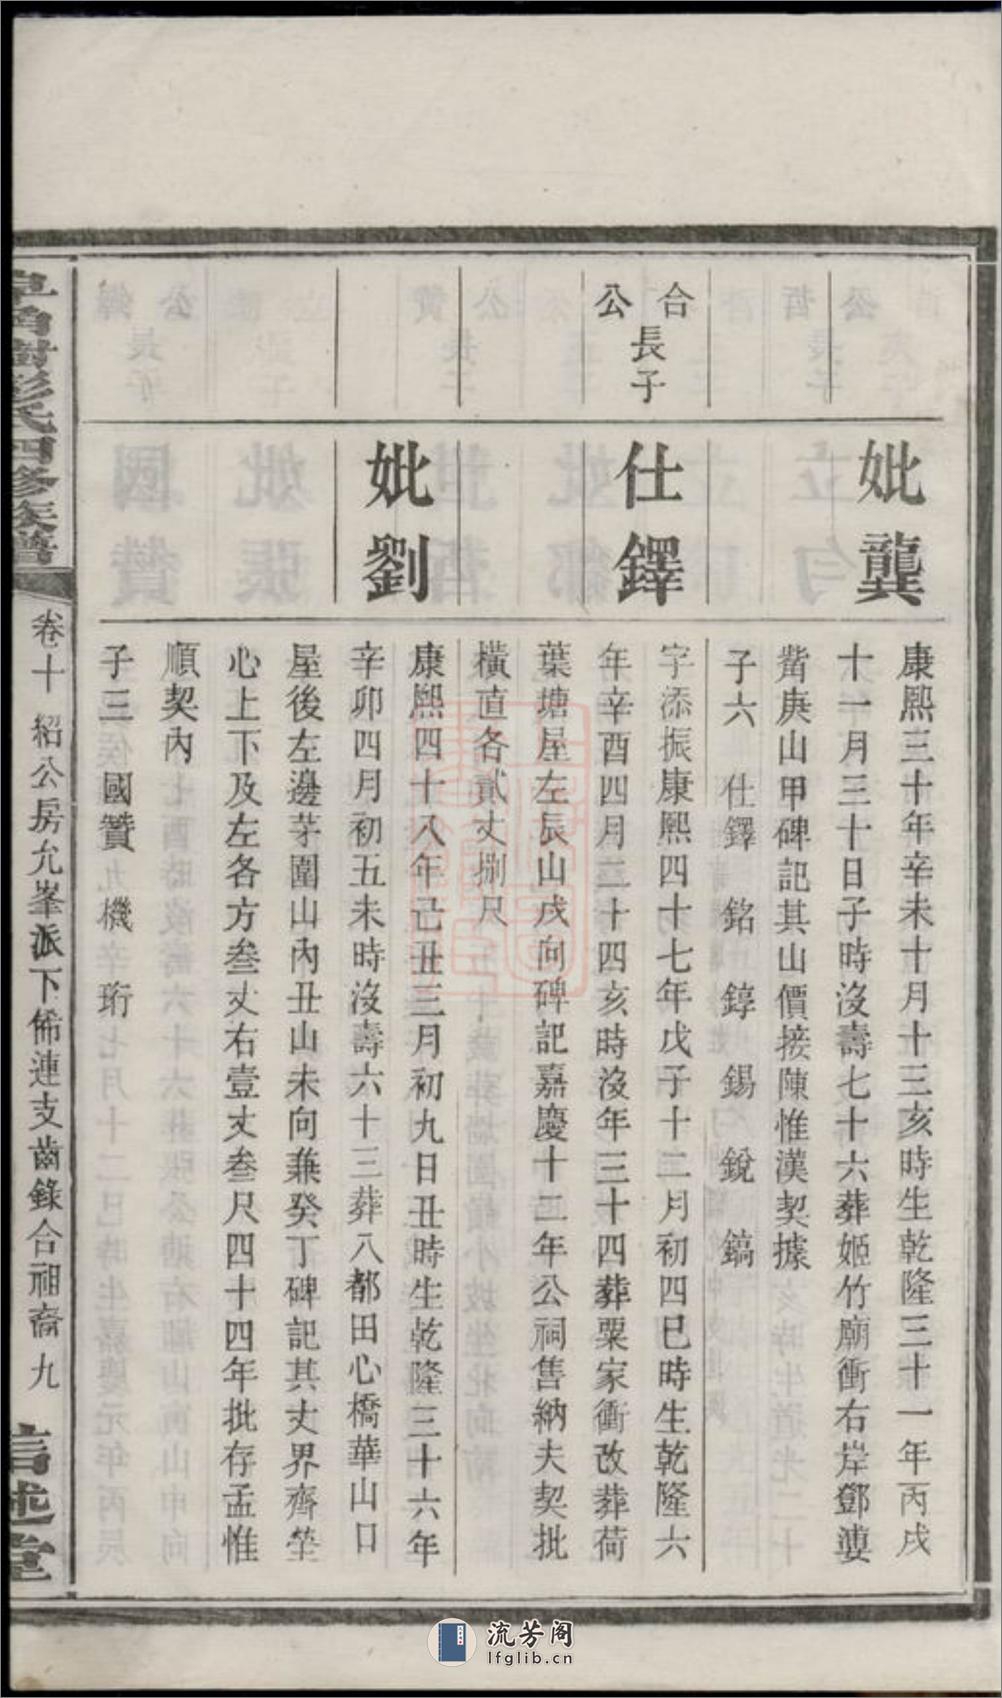 妣龔
康熙三十年辛未十月十三亥時生乾隆三十一年丙戌
十一月三十日子時沒壽七十六葬姬竹廟衝右岸鄧婆
觜庚山甲碑記其山價接陳惟漢契據
子六 仕鐸 銘 錞 錫 銳 鎬
合公長子
仕鐸
字添振康熙四十七年戊子十二月初四巳時生乾隆六
年辛酉四月二十四亥時沒年三十四葬粟家衝改葬荷
葉塘屋左辰山戌向碑記嘉慶十二年公祠售納夫契批
橫直各貳丈捌尺
妣劉
康熙四十八年己丑三月初九日丑時生乾隆三十六年
辛卯四月初五未時沒壽六十三葬八都田心橋華山口
屋後左邊茅圍山內丑山未向兼癸丁碑記其丈界齊塋
心上下及左各方叁丈右壹丈叁尺四十四年批存孟惟
順契內
子三 國贊 機 珩
彭氏四修族譜
卷十 紹公房允峯派下俙連支齒錄合祖裔 九
信述堂
流芳阁
lfglib.cn